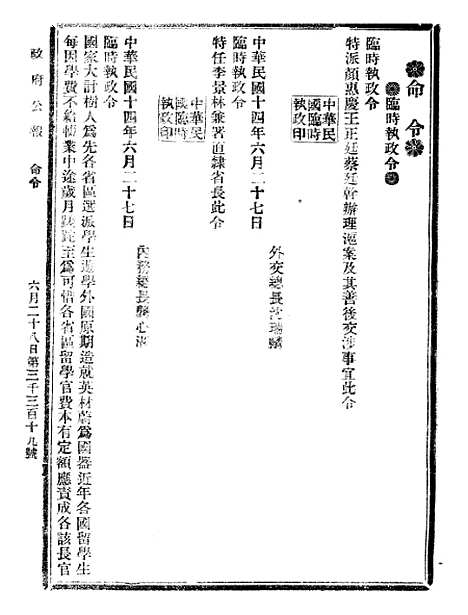 命令
臨時執政令
臨時執政令
特派顏惠慶王正廷蔡廷幹辦理滬案及其善後交涉事宜此令
中華民
國臨時
執政印
中華民國十四年六月二十七日
外交總長沈瑞麟
臨時執政令
特任李景林兼署直隸省長此令
中華民
國臨時
執政印
中華民國十四年六月二十七日
內務總長龔心湛
臨時執政令
國家大計樹人為先各省區選派學生遊學外國原期造就英材蔚為國器近年各國留學生
每因學費不給輟業中途歲月蹉跎至為可惜各省區留學官費本有定額應責成各該長官
政府公報
命令
六月二十八日第三千三百十九號